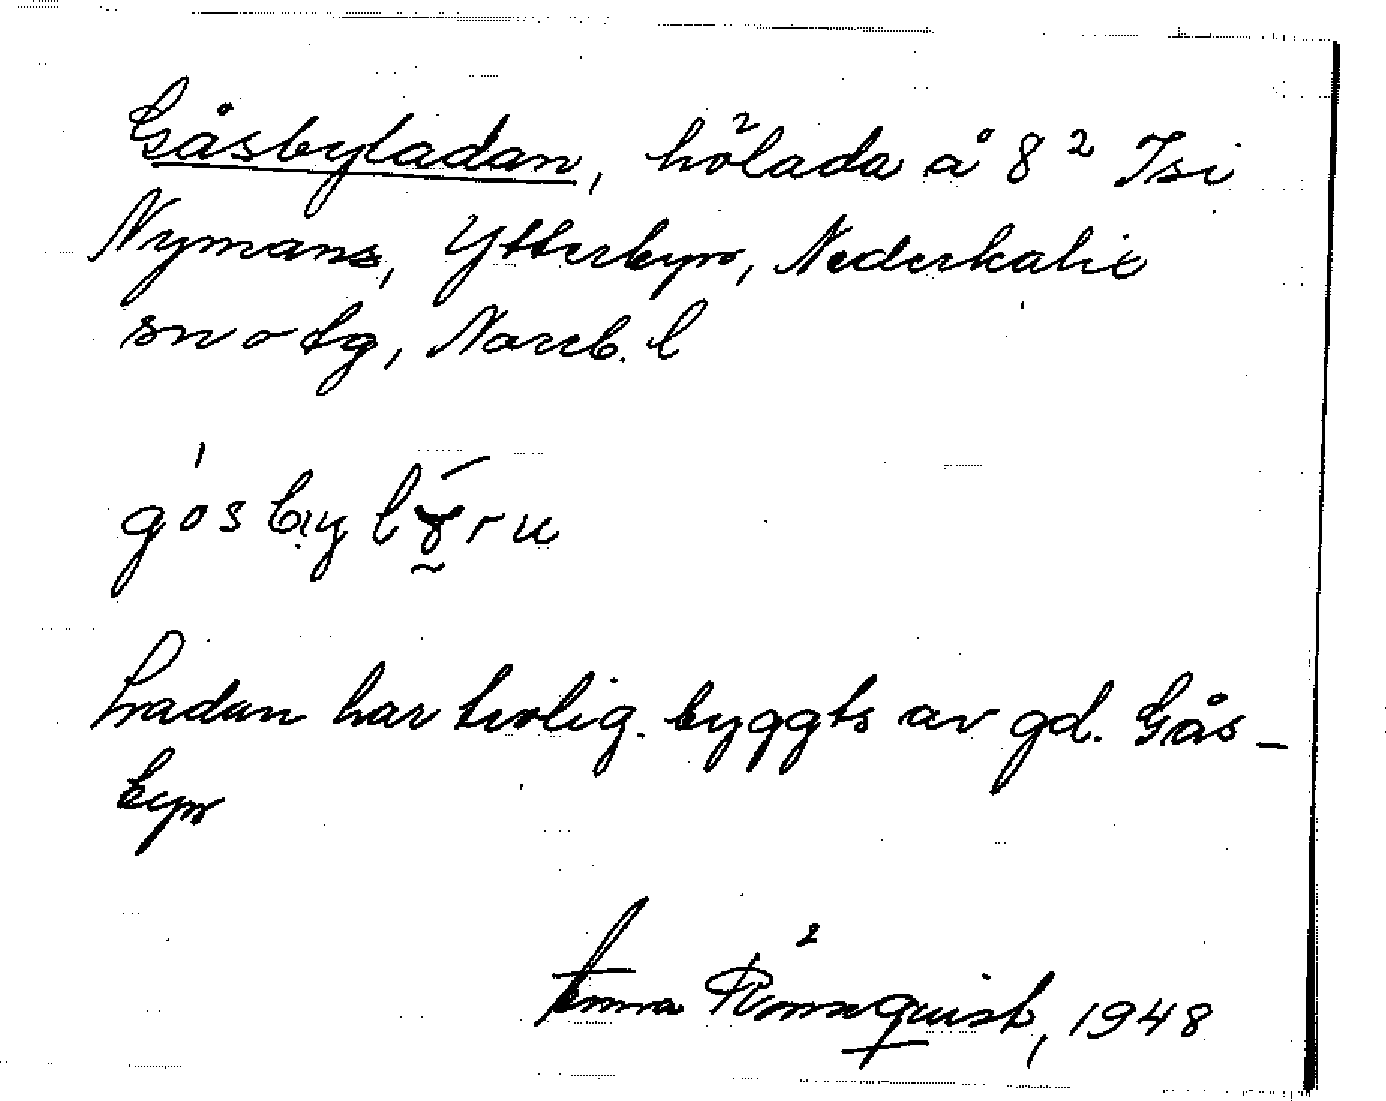 Gåsbyladan, hölada å 8² Isi
Nymans, Ytterbyn, Nederkalix
sn o tg, Norrb. l
Ladan har troligt. byggts av gd. Gås-
byn
Anna Rönnquist, 1948